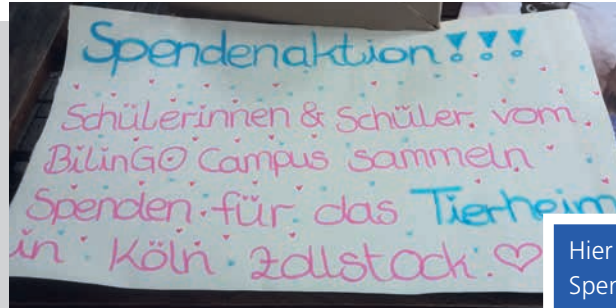 Spendenaktion!!!
Schülerinnen & Schüler vom
BilinGO Campus sammeln
Spenden für das Tierheim
in Köln Zollstock ♡
Hier
Spen